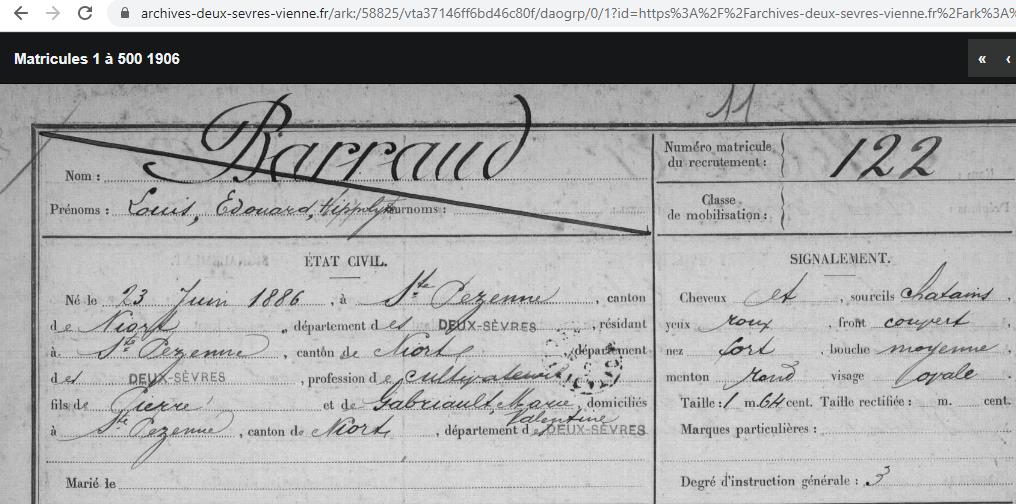 archives-deux-sevres-vienne.fr/ark:/58825/vta37146ff6bd46c80f/daogrp/0/1?id=https%3A%2F%2Farchives-deux-sevres-vienne.fr%2Fark%3A%
Matricules 1 à 500 1906 « ‹
11
Nom : Barraud
Prénoms : Louis, Edouard, Hippolyte Surnoms :
Numéro matricule du recrutement : 122
Classe de mobilisation :
ÉTAT CIVIL.
Né le 23 Juin 1886, à Ste Pezenne, canton
de Niort, département des DEUX-SÈVRES, résidant
à Ste Pezenne, canton de Niort, département
des DEUX-SÈVRES, profession de cultivateur,
fils de Pierre et de Gabriault, Marie Valentine, domiciliés
à Ste Pezenne, canton de Niort, département des DEUX-SÈVRES
Marié le
SIGNALEMENT.
Cheveux et, sourcils chatains,
yeux roux, front couvert,
nez fort, bouche moyenne,
menton rond visage ovale
Taille : 1 m. 64 cent. Taille rectifiée : m. cent.
Marques particulières :
Degré d'instruction générale : 3